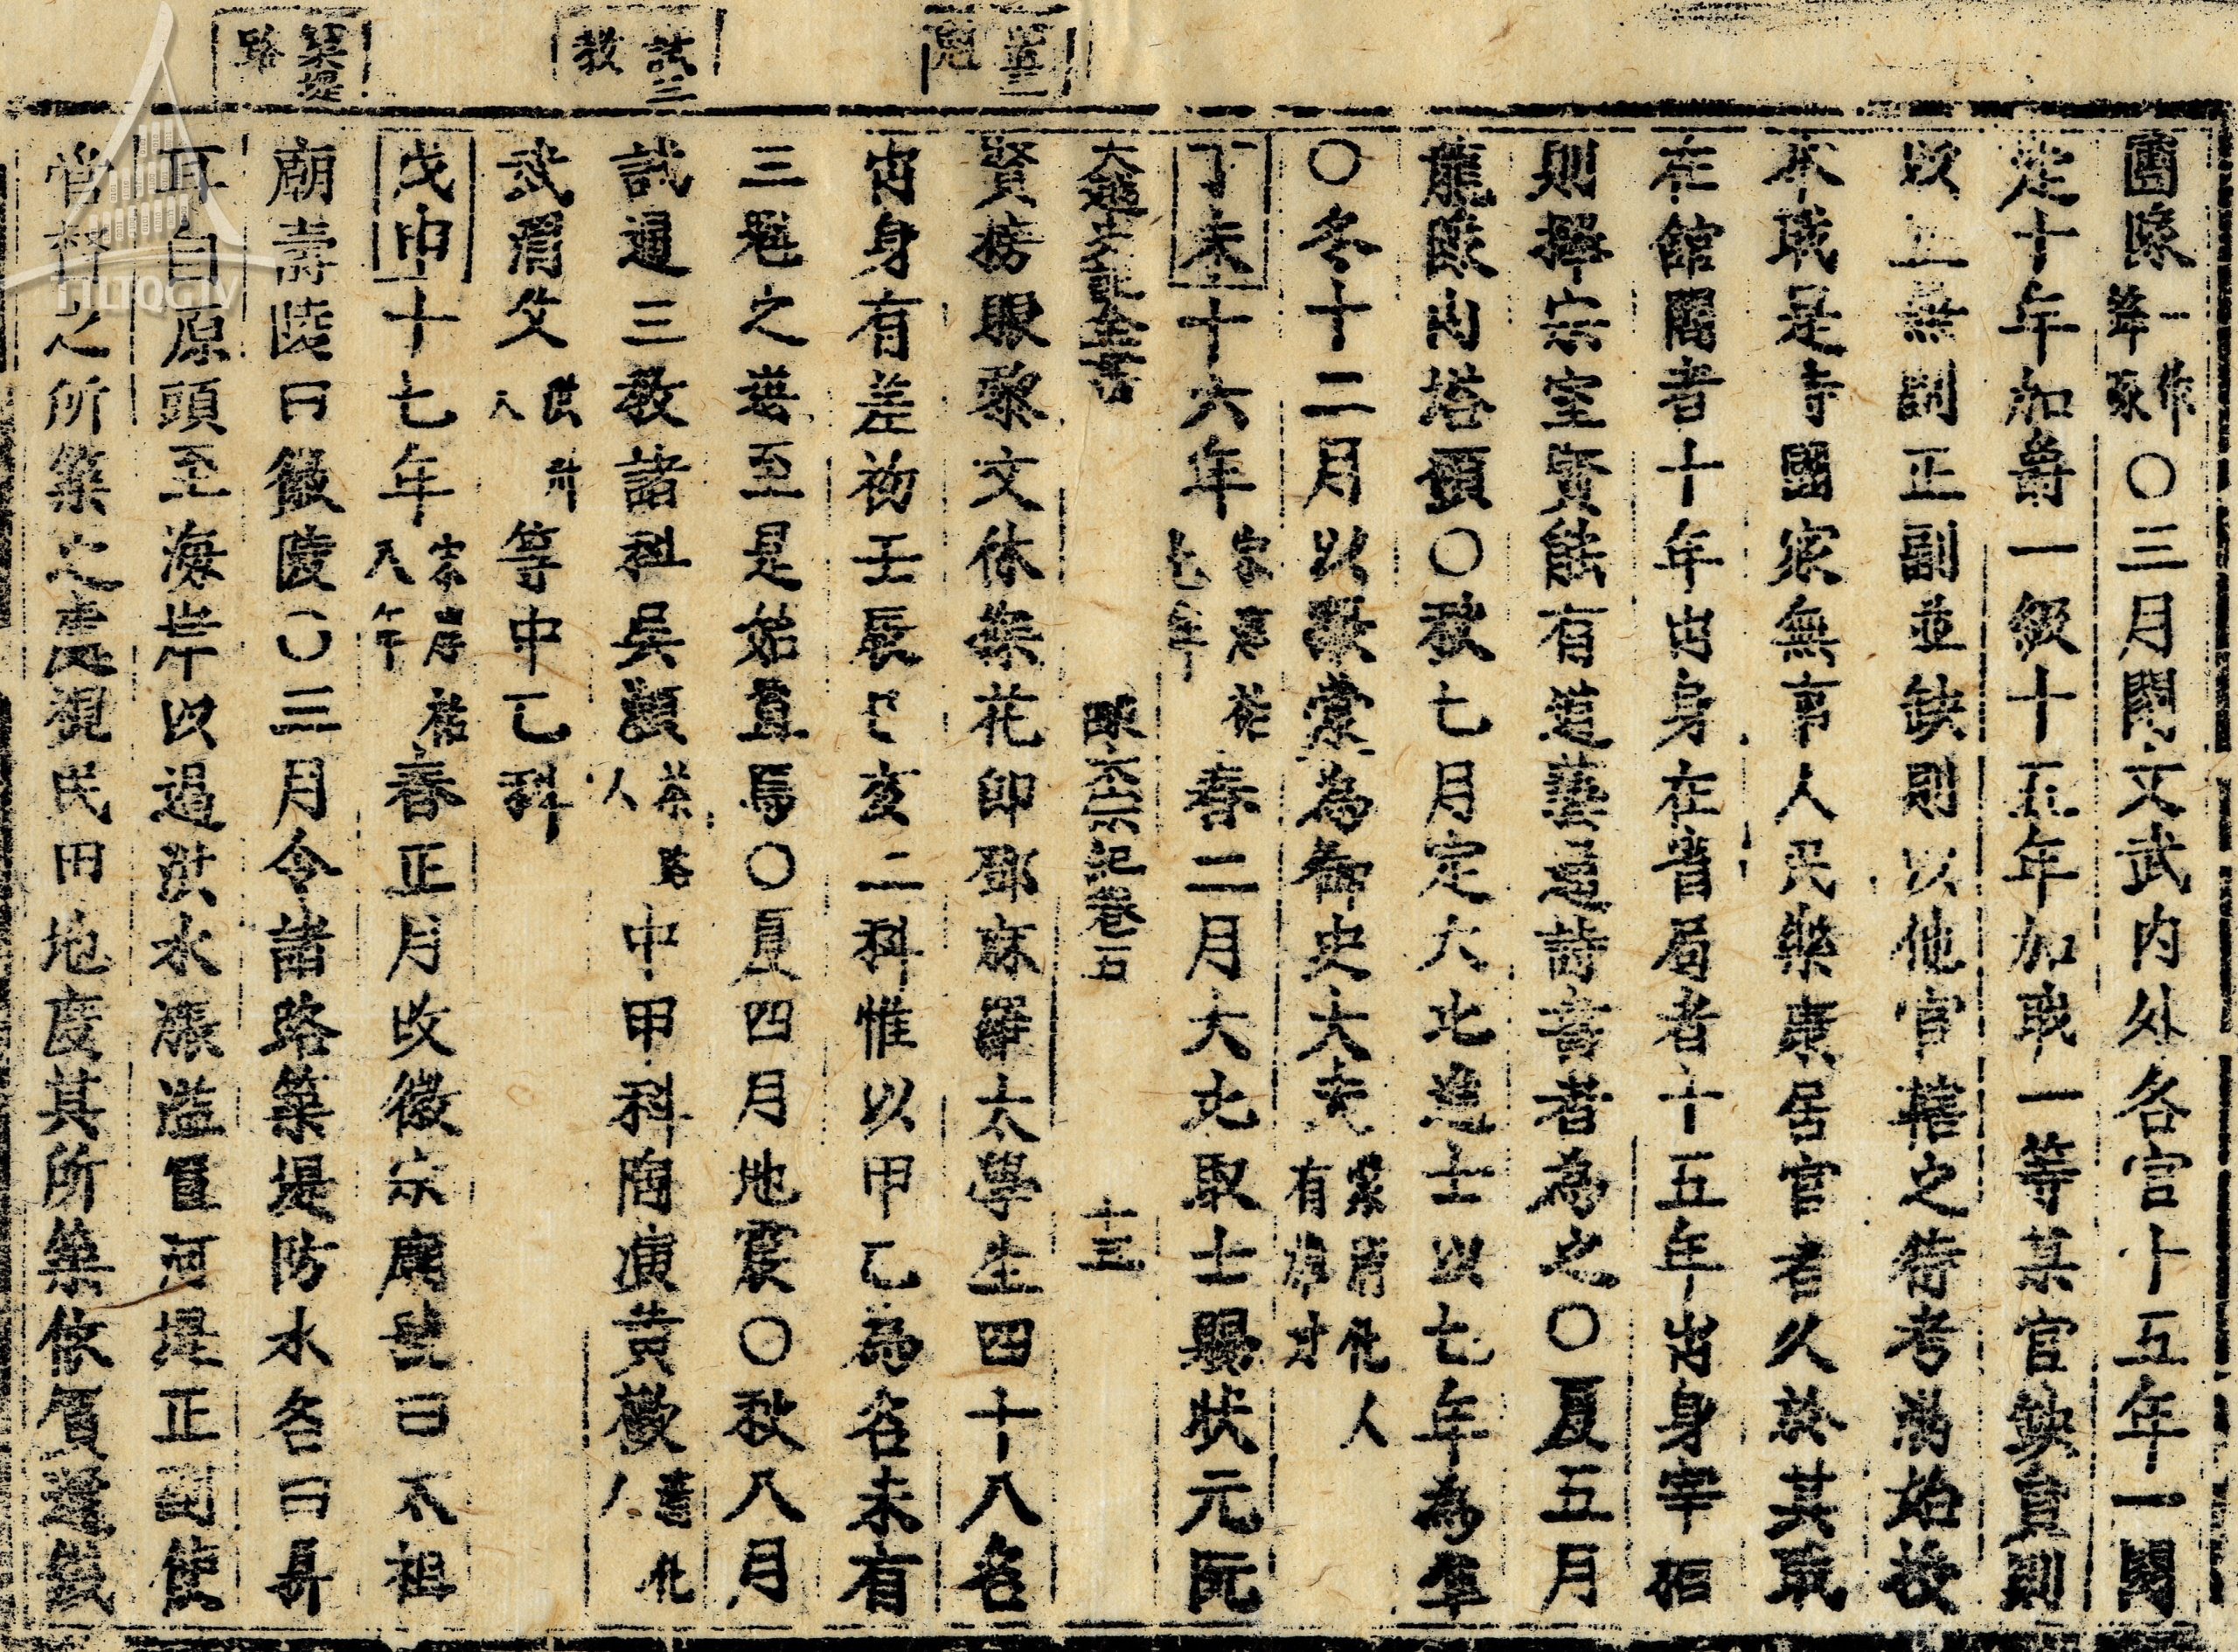 置三
魁
試三
教
築堤
路
團隊一作峯豚〇三月閱文武内外各官十五年一閱
定十年加爵一級十五年加戢一等某官缺員則
以正兼副正副並缺則以他官轄之待考滿始授
本戢是寺國家無事人民樂康居官者久於其戢
在館閣者十年出身在省局者十五年出身宰相
則擇宗室賢能有道藝通詩書者為之〇夏五月
龍隊内塔頭〇秋七月定大比進士以七年為準
〇冬十二月以張棠為御史大夫棠清化人有雄才
丁未十六年宋淳祐七年春二月大比取士賜狀元阮
大越史記全書 陳太宗紀卷五 十三
賢榜眼黎文休探花郎鄧麻羅太學生四十八名
出身有差初壬辰己亥二科惟以甲乙為名未有
三魁之選至是始置焉〇夏四月地震〇秋八月
試通三教諸科吳頻茶路人中甲科陶演黄歡青化人
武渭父洪州人等中乙科
戊申十七年宋淳祐八年春正月改徽宗廟號曰太祖
廟壽陵曰徽陵〇三月令諸路築堤防水名曰鼎
耳自原頭至海岸以遏洪水漲溢置河堤正副使
管督之所築之處視民田地度其所築依價還錢